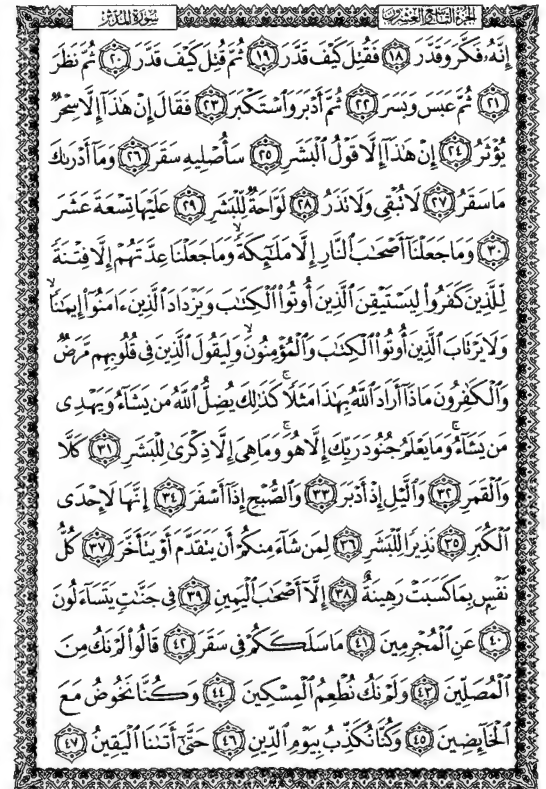 الجزء التاسع والعشرين سورة المدثر
إِنَّهُۥ فَكَّرَ وَقَدَّرَ ۝١٨ فَقُتِلَ كَيْفَ قَدَّرَ ۝١٩ ثُمَّ قُتِلَ كَيْفَ قَدَّرَ ۝٢٠ ثُمَّ نَظَرَ
۝٢١ ثُمَّ عَبَسَ وَبَسَرَ ۝٢٢ ثُمَّ أَدْبَرَ وَٱسْتَكْبَرَ ۝٢٣ فَقَالَ إِنْ هَٰذَآ إِلَّا سِحْرٌ
يُؤْثَرُ ۝٢٤ إِنْ هَٰذَآ إِلَّا قَوْلُ ٱلْبَشَرِ ۝٢٥ سَأُصْلِيهِ سَقَرَ ۝٢٦ وَمَآ أَدْرَىٰكَ
مَا سَقَرُ ۝٢٧ لَا تُبْقِى وَلَا تَذَرُ ۝٢٨ لَوَّاحَةٌ لِّلْبَشَرِ ۝٢٩ عَلَيْهَا تِسْعَةَ عَشَرَ
۝٣٠ وَمَا جَعَلْنَآ أَصْحَٰبَ ٱلنَّارِ إِلَّا مَلَٰٓئِكَةً ۙ وَمَا جَعَلْنَا عِدَّتَهُمْ إِلَّا فِتْنَةً
لِّلَّذِينَ كَفَرُوا۟ لِيَسْتَيْقِنَ ٱلَّذِينَ أُوتُوا۟ ٱلْكِتَٰبَ وَيَزْدَادَ ٱلَّذِينَ ءَامَنُوٓا۟ إِيمَٰنًا ۙ
وَلَا يَرْتَابَ ٱلَّذِينَ أُوتُوا۟ ٱلْكِتَٰبَ وَٱلْمُؤْمِنُونَ ۙ وَلِيَقُولَ ٱلَّذِينَ فِى قُلُوبِهِم مَّرَضٌ
وَٱلْكَٰفِرُونَ مَاذَآ أَرَادَ ٱللَّهُ بِهَٰذَا مَثَلًا ۚ كَذَٰلِكَ يُضِلُّ ٱللَّهُ مَن يَشَآءُ وَيَهْدِى
مَن يَشَآءُ ۚ وَمَا يَعْلَمُ جُنُودَ رَبِّكَ إِلَّا هُوَ ۚ وَمَا هِىَ إِلَّا ذِكْرَىٰ لِلْبَشَرِ ۝٣١ كَلَّا
وَٱلْقَمَرِ ۝٣٢ وَٱلَّيْلِ إِذْ أَدْبَرَ ۝٣٣ وَٱلصُّبْحِ إِذَآ أَسْفَرَ ۝٣٤ إِنَّهَا لَإِحْدَى
ٱلْكُبَرِ ۝٣٥ نَذِيرًا لِّلْبَشَرِ ۝٣٦ لِمَن شَآءَ مِنكُمْ أَن يَتَقَدَّمَ أَوْ يَتَأَخَّرَ ۝٣٧ كُلُّ
نَفْسٍۭ بِمَا كَسَبَتْ رَهِينَةٌ ۝٣٨ إِلَّآ أَصْحَٰبَ ٱلْيَمِينِ ۝٣٩ فِى جَنَّٰتٍ يَتَسَآءَلُونَ
۝٤٠ عَنِ ٱلْمُجْرِمِينَ ۝٤١ مَا سَلَكَكُمْ فِى سَقَرَ ۝٤٢ قَالُوا۟ لَمْ نَكُ مِنَ
ٱلْمُصَلِّينَ ۝٤٣ وَلَمْ نَكُ نُطْعِمُ ٱلْمِسْكِينَ ۝٤٤ وَكُنَّا نَخُوضُ مَعَ
ٱلْخَآئِضِينَ ۝٤٥ وَكُنَّا نُكَذِّبُ بِيَوْمِ ٱلدِّينِ ۝٤٦ حَتَّىٰٓ أَتَىٰنَا ٱلْيَقِينُ ۝٤٧